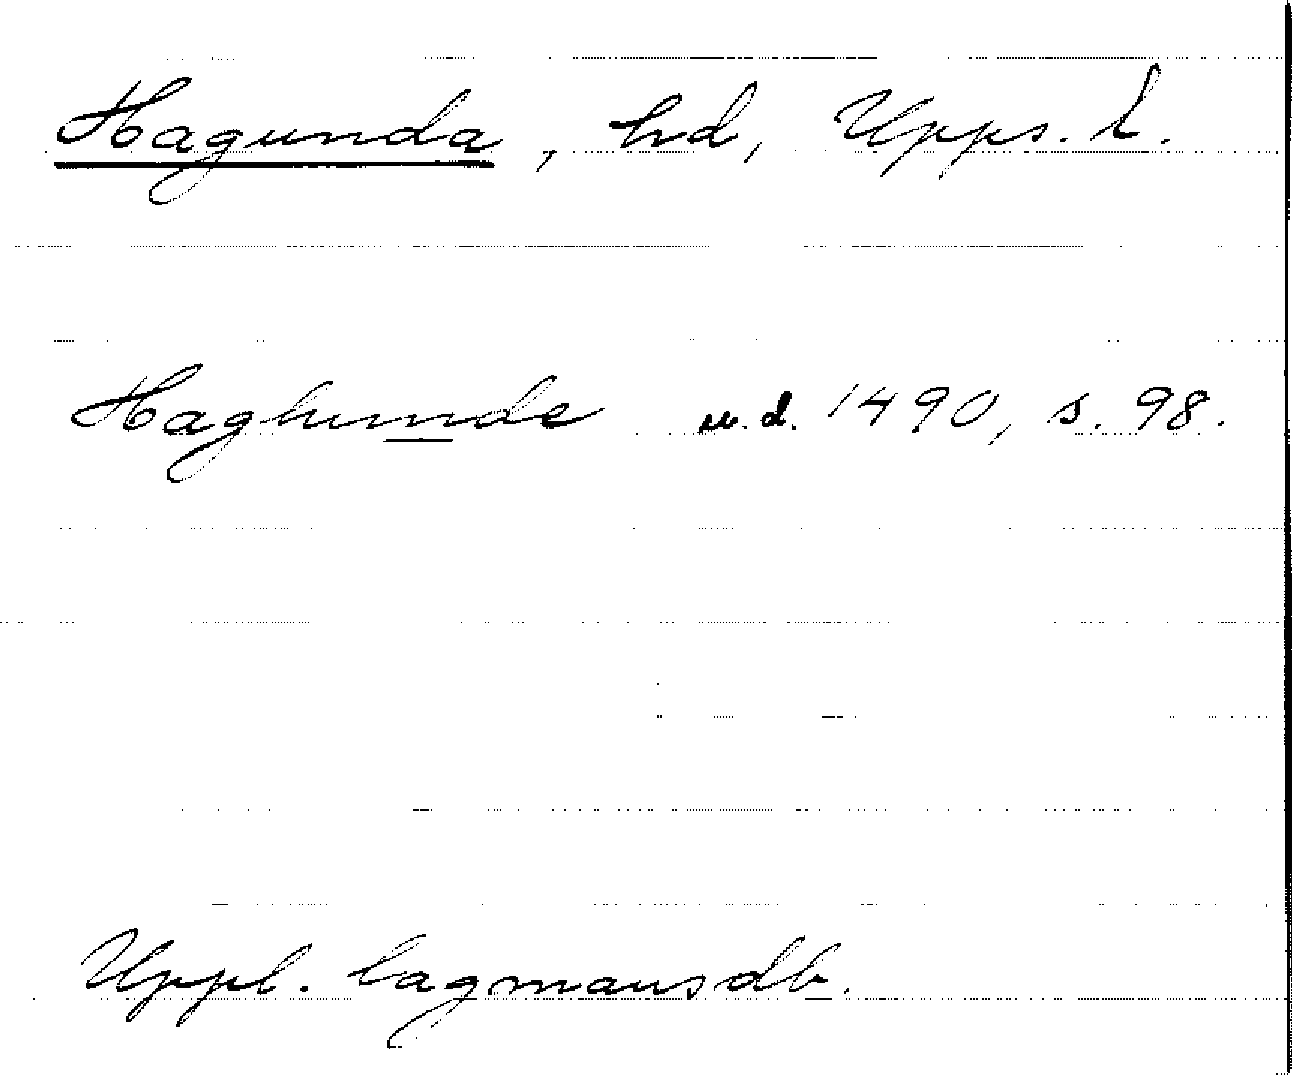 Hagunda, hd, Upps. l.
Haghunde u.d. 1490, s. 98.
Uppl. lagmansdb.